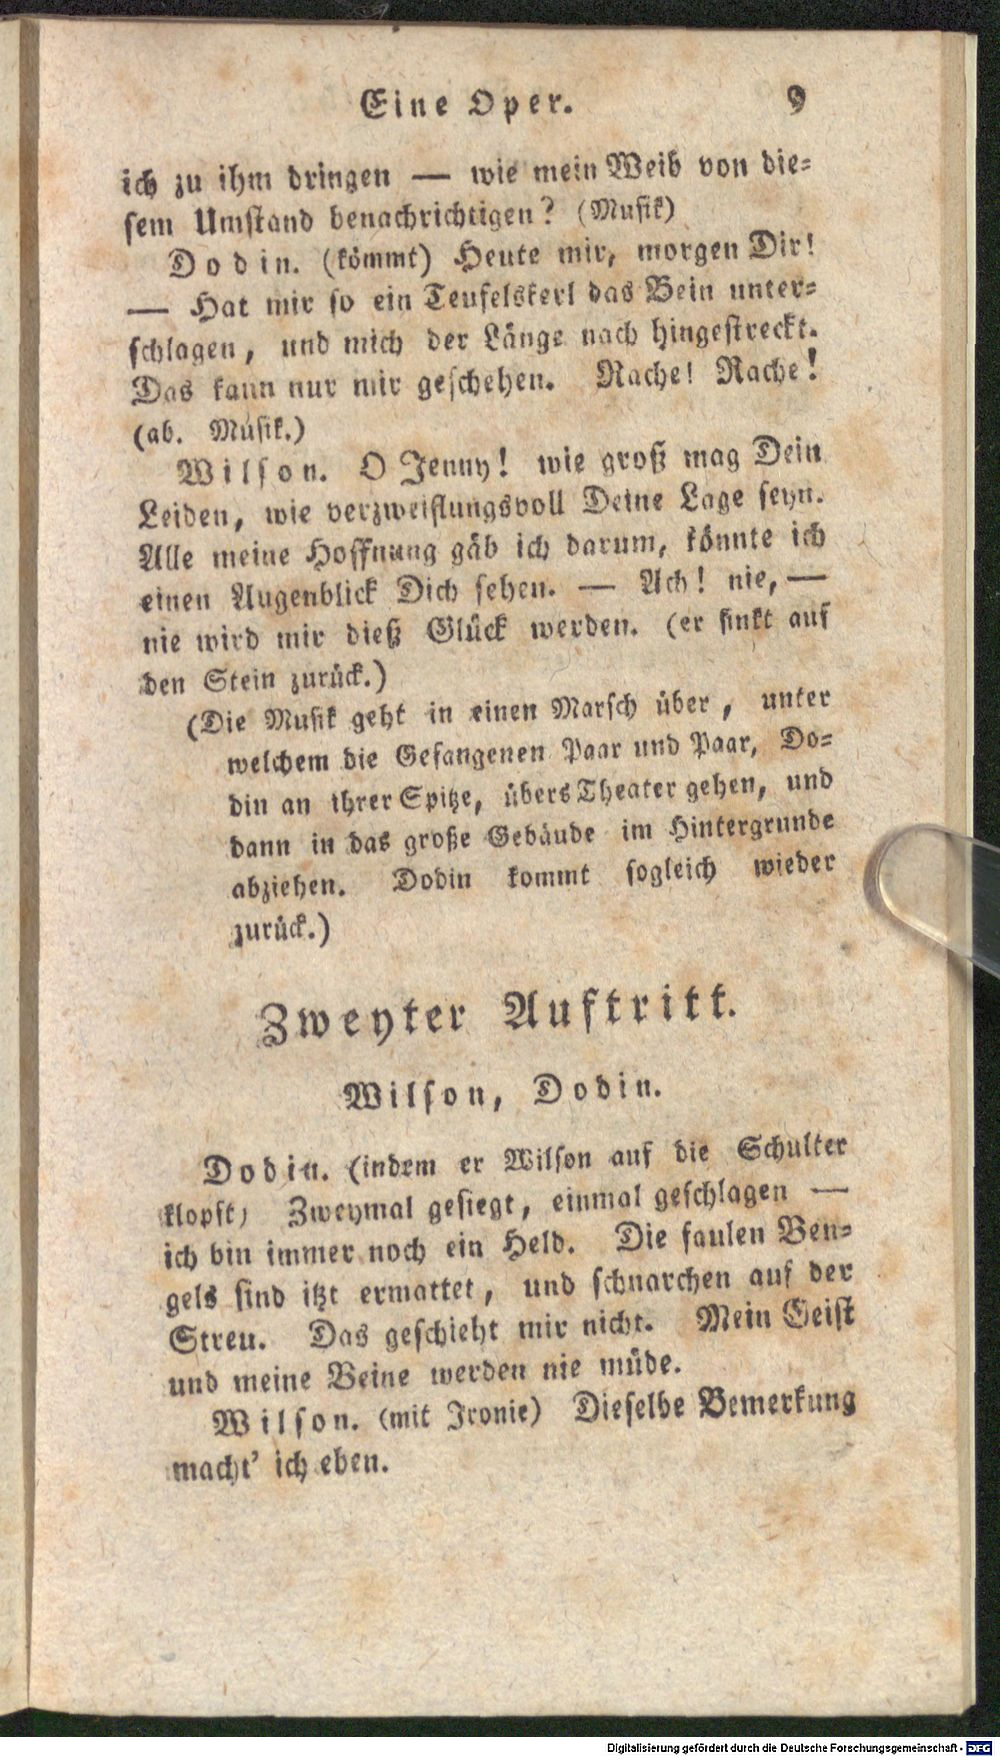 Eine Oper. 9
ich zu ihm dringen — wie mein Weib von die-
sem Umstand benachrichtigen? (Musik)
Dodin. (kömmt) Heute mir, morgen Dir!
— Hat mir so ein Teufelskerl das Bein unter-
schlagen, und mich der Länge nach hingestreckt.
Das kann nur mir geschehen. Rache! Rache!
(ab. Musik.)
Wilson. O Jenny! wie groß mag Dein
Leiden, wie verzweiflungsvoll Deine Lage seyn.
Alle meine Hoffnung gäb ich darum, könnte ich
einen Augenblick Dich sehen. — Ach! nie, —
nie wird mir dieß Glück werden. (er sinkt auf
den Stein zurück.)
(Die Musik geht in einen Marsch über, unter
welchem die Gefangenen Paar und Paar, Do-
din an ihrer Spitze, übers Theater gehen, und
dann in das große Gebäude im Hintergrunde
abziehen. Dodin kommt sogleich wieder
zurück.)
Zweyter Auftritt.
Wilson, Dodin.
Dodin. (indem er Wilson auf die Schulter
klopft) Zweymal gesiegt, einmal geschlagen —
ich bin immer noch ein Held. Die faulen Ben-
gels sind itzt ermattet, und schnarchen auf der
Streu. Das geschieht mir nicht. Mein Geist
und meine Beine werden nie müde.
Wilson. (mit Ironie) Dieselbe Bemerkung
macht' ich eben.
Digitalisierung gefördert durch die Deutsche Forschungsgemeinschaft - DFG